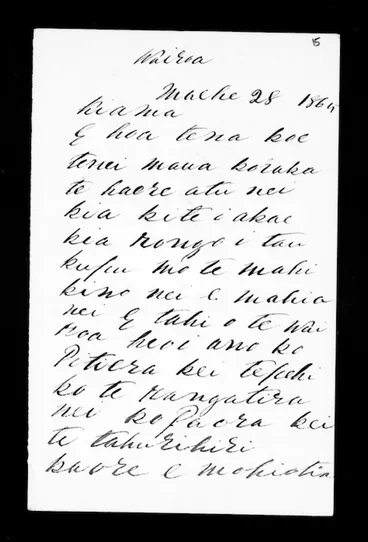 5
Wairoa
Maehe 28 1865
Kia ma
E hoa tena koe
tenei maua ko raka
te haere atu nei
kia kite i a koe
kia rongo i tau
kupu mo te mahi
kino nei e mahia
nei E tahi o te wai
roa heoi ano ko
Pitiera kei te pehi
ko te Rangatira
nei ko Paora kei
te tahurihuri
kaore e mohiotia